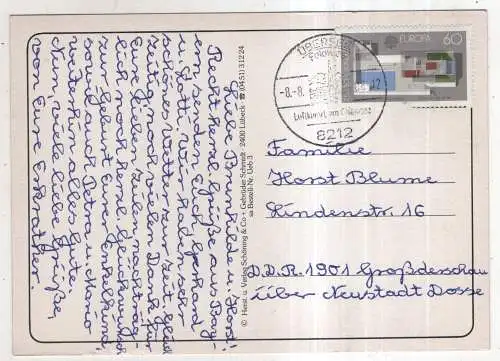 Liebe Brunhilde u. Horst!
Recht herzl. Grüße aus Bay-
ern senden Euch Gerhard
u. Gotti. Wir haben sehr
schönes Wetter zur Zeit
Vielen Dank für
Eure lieben Zeilen nachträg-
lich noch herzl. Glückwunsch
zur Geburt Eurer Enkelkind,
sowie auch Petra u. Mario
alles Gute.
Nun viele liebe Grüße,
von Eure
© Herst. u. Verlag Schöning & Co + Gebrüder Schmidt · 2400 Lübeck · ☎ (04 51) 3 12 24
sa Bestell-Nr. Ueb 3
ÜBERSEE
-8.-8.
12
Luftkurort am Chiemsee
8212
EUROPA 60
Familie
Horst Blume
Lindenstr. 16
D.D.R. 1901 Großderschau
über Neustadt Dosse